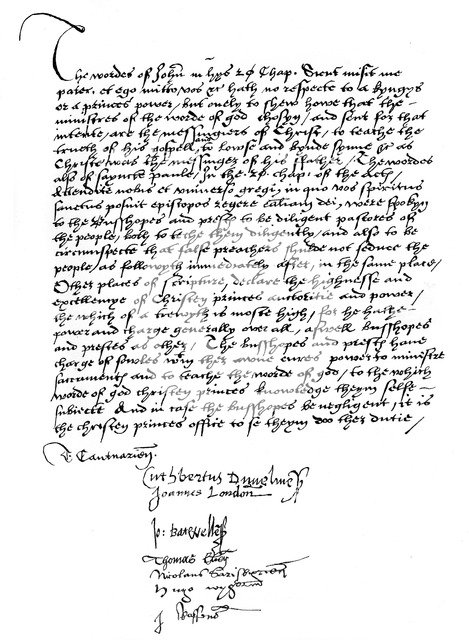 The wordes of John in hys 20 Chap. Sicut misit me
pater, et ego mitto vos &c hath no respecte to a kyngys
or a princes power, but onely to shew howe that the
ministres of the worde of god chosyn, and sent for that
intente, are the messingiers of Christ, to teache the
trueth of his gospell, to lowse and bynde synne &c as
Christe was the messinger of his father, The wordes
also of saynct paule, In the 20. chap. of the actes,
Attendite vobis et universo gregi, in quo vos spiritus
sanctus posuit episcopos regere ecclesiam dei, were spokyn
to the Busshopes and prestes to be diligent pastores of
the people, both to teche them diligently, and also to be
circumspecte that false preachers shulde not seduce the
people, as followyth immediately after, in the same place,
Other places of scripture, declare the highnesse and
excellencye of Christen princes auctoritie and power,
the which of a trewyth is moste high, for he hathe
power and charge generally over all, aswell Busshopes
and prestes as other, The Busshopes and prestes have
charge of sowles within ther awne cures, power to ministre
sacramentes and to teache the worde of god, to the which
worde of god christen princes knowledge theym selfe
subiecte And in case the busshopes be negligent, it is
the christen princes office to se theym doo ther dutie,
T. Cantuarien.
Cuthbertus Dunelmen
Joannes London
Jo: batwellens
Thomas Elien
Nicolaus Sarisburien
Hugo wygorn
J. Roffens